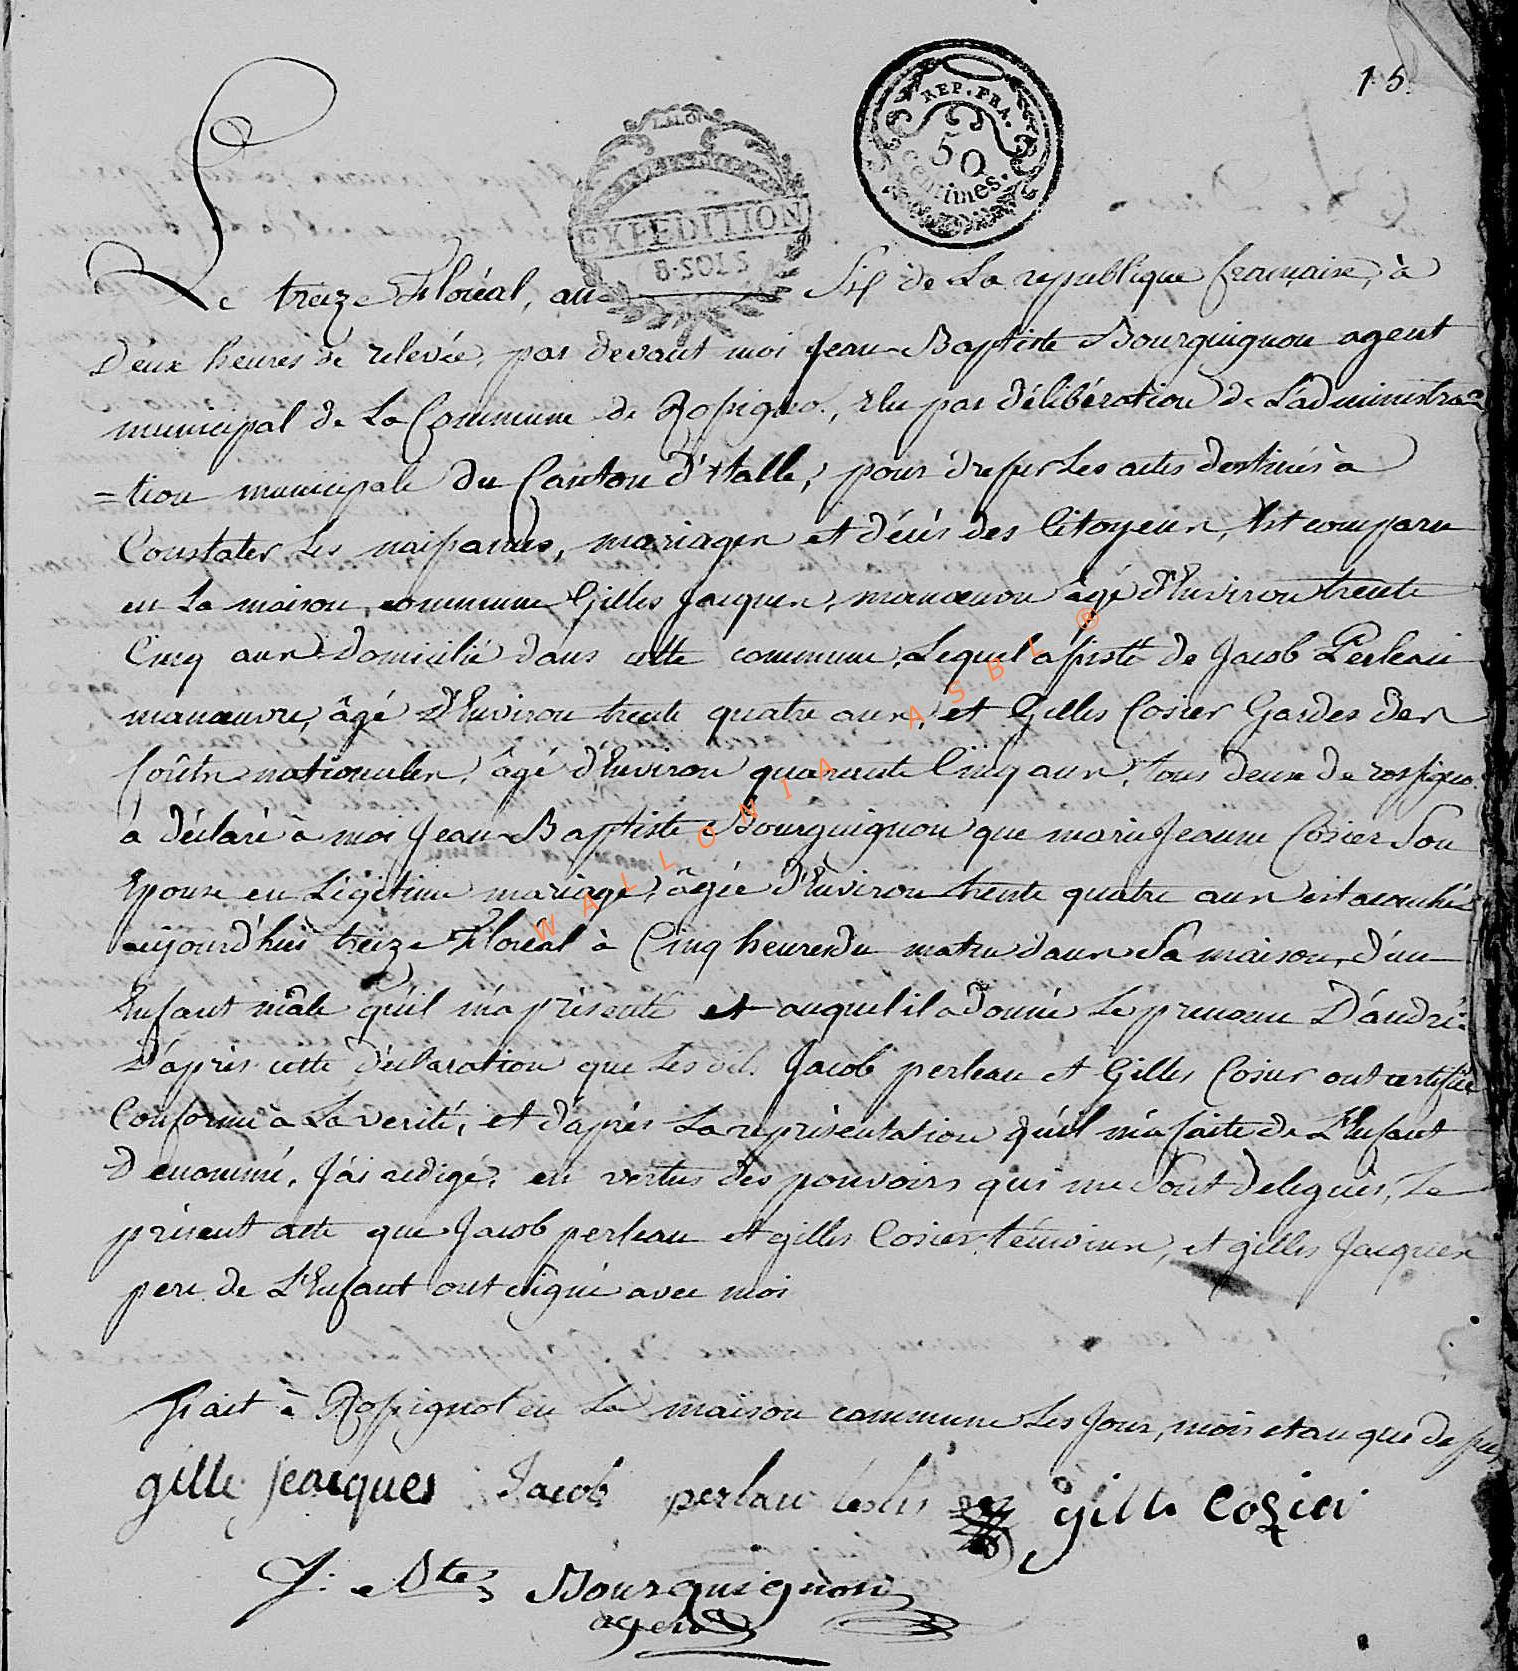 15.
LALOI
EXPEDITION
8·SOLS
REP. FRA.
50
Centimes.
Le treize floréal, an Six de La republique française, à
Deux heures de relevée, par devant moi Jean Baptiste Bourguignon agent
municipal de La Commune de Rossigno., Elu par délibération de L'administra=
=tion municipale du Canton d'Etalle, pour dresser Les actes destinés à
Constater Les naissances, mariages et décès des Citoyens, Est comparu
en La maison commune Gilles Jacques, manœuvre âgé d'Environ trente
Cinq ans domicilié dans cette commune, Lequel assisté de Jacob Perleau
manœuvre, âgé D'Environ trente quatre ans, et Gilles Cosier Gardes des
forêts nationales, âgé d'Environ quarante Cinq ans, tous deux de rossigno.
à déclaré à moi Jean Baptiste Bourguignon que marie Jeanne Cosier Son
Epouse en Légitime mariage, âgée d'Environ trente quatre ans est accouchée
aujourd'hui treize floréal à Cinq heures du matin dans Sa maison, d'un
Enfant mâle qu'il m'a présenté et auquel il a donné Le prenom D'andré.
D'après cette déclaration que Les dits Jacob perleau et Gilles Cosier ont certifiée
Conforme à La verité, et d'après La représentation qu'il m'a faite de L'Enfant
Denommé, J'ai redigé, en vertus des pouvoirs qui me Sont delegués, Le
présent acte que Jacob perleau et gilles Cosier témoins, et gilles Jacques
pere de L'Enfant ont signé avec moi
Fait à Rossignol en La maison commune Les Jour, mois et an que dessus
gille jeacques Jacob perlau gille Cozier
J. Bte Bourguignon
agent
WALLONIA ASBL ®